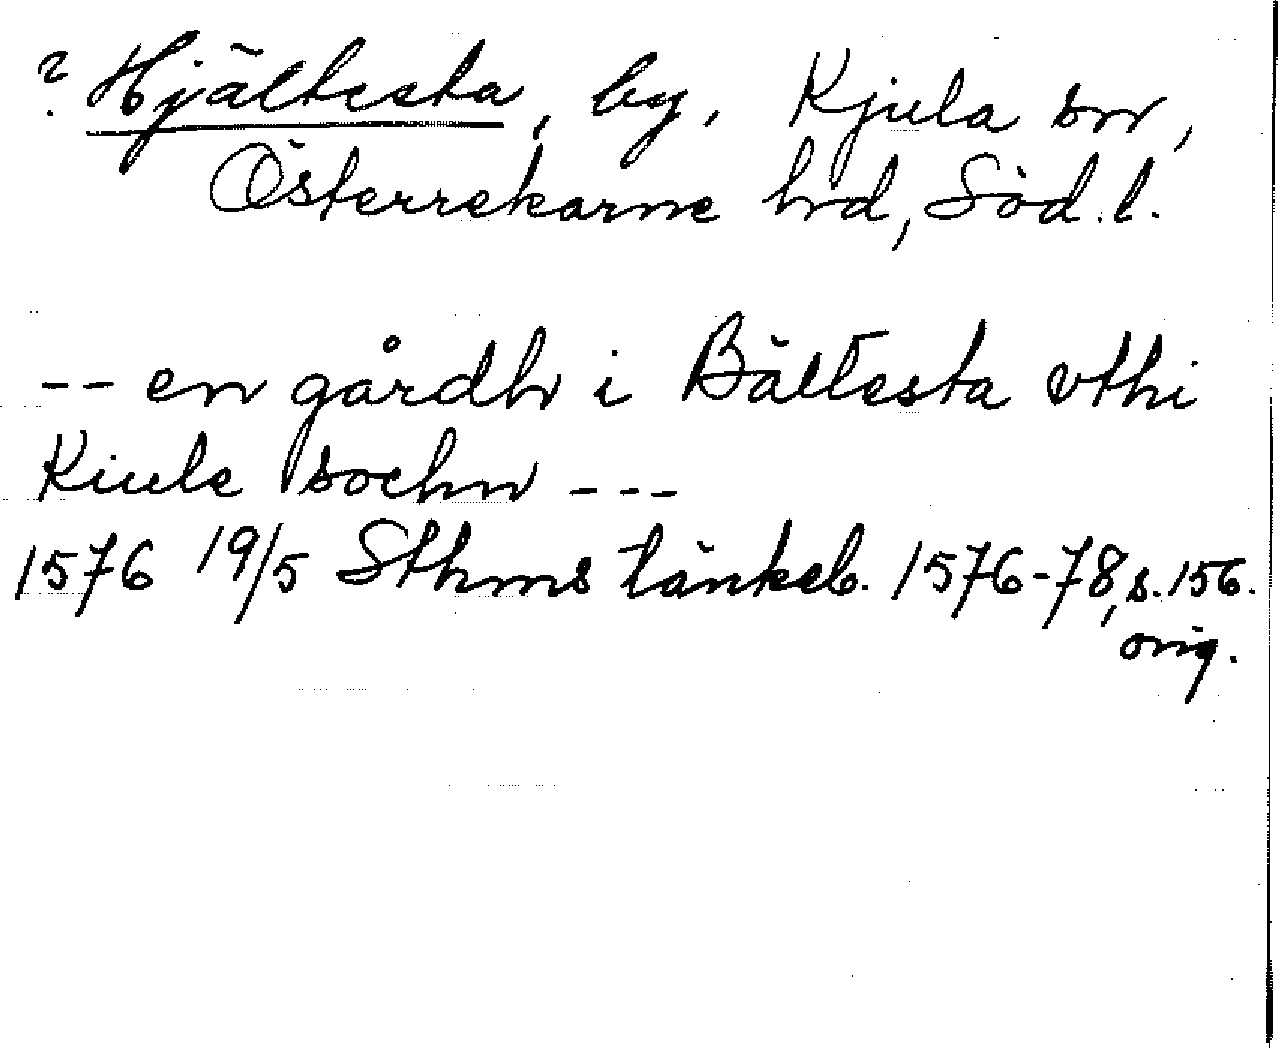 ? Hjältesta, by, Kjula sn,
Österrekarne hd, Söd. l.
-- en gårdh i Bältesta vthi
Kiule sochn ---
1576 19/5 Sthms tänkeb. 1576-78, s. 156.
orig.